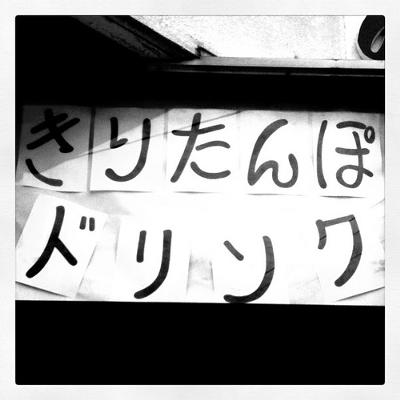 きりたんぽ
ドリンク